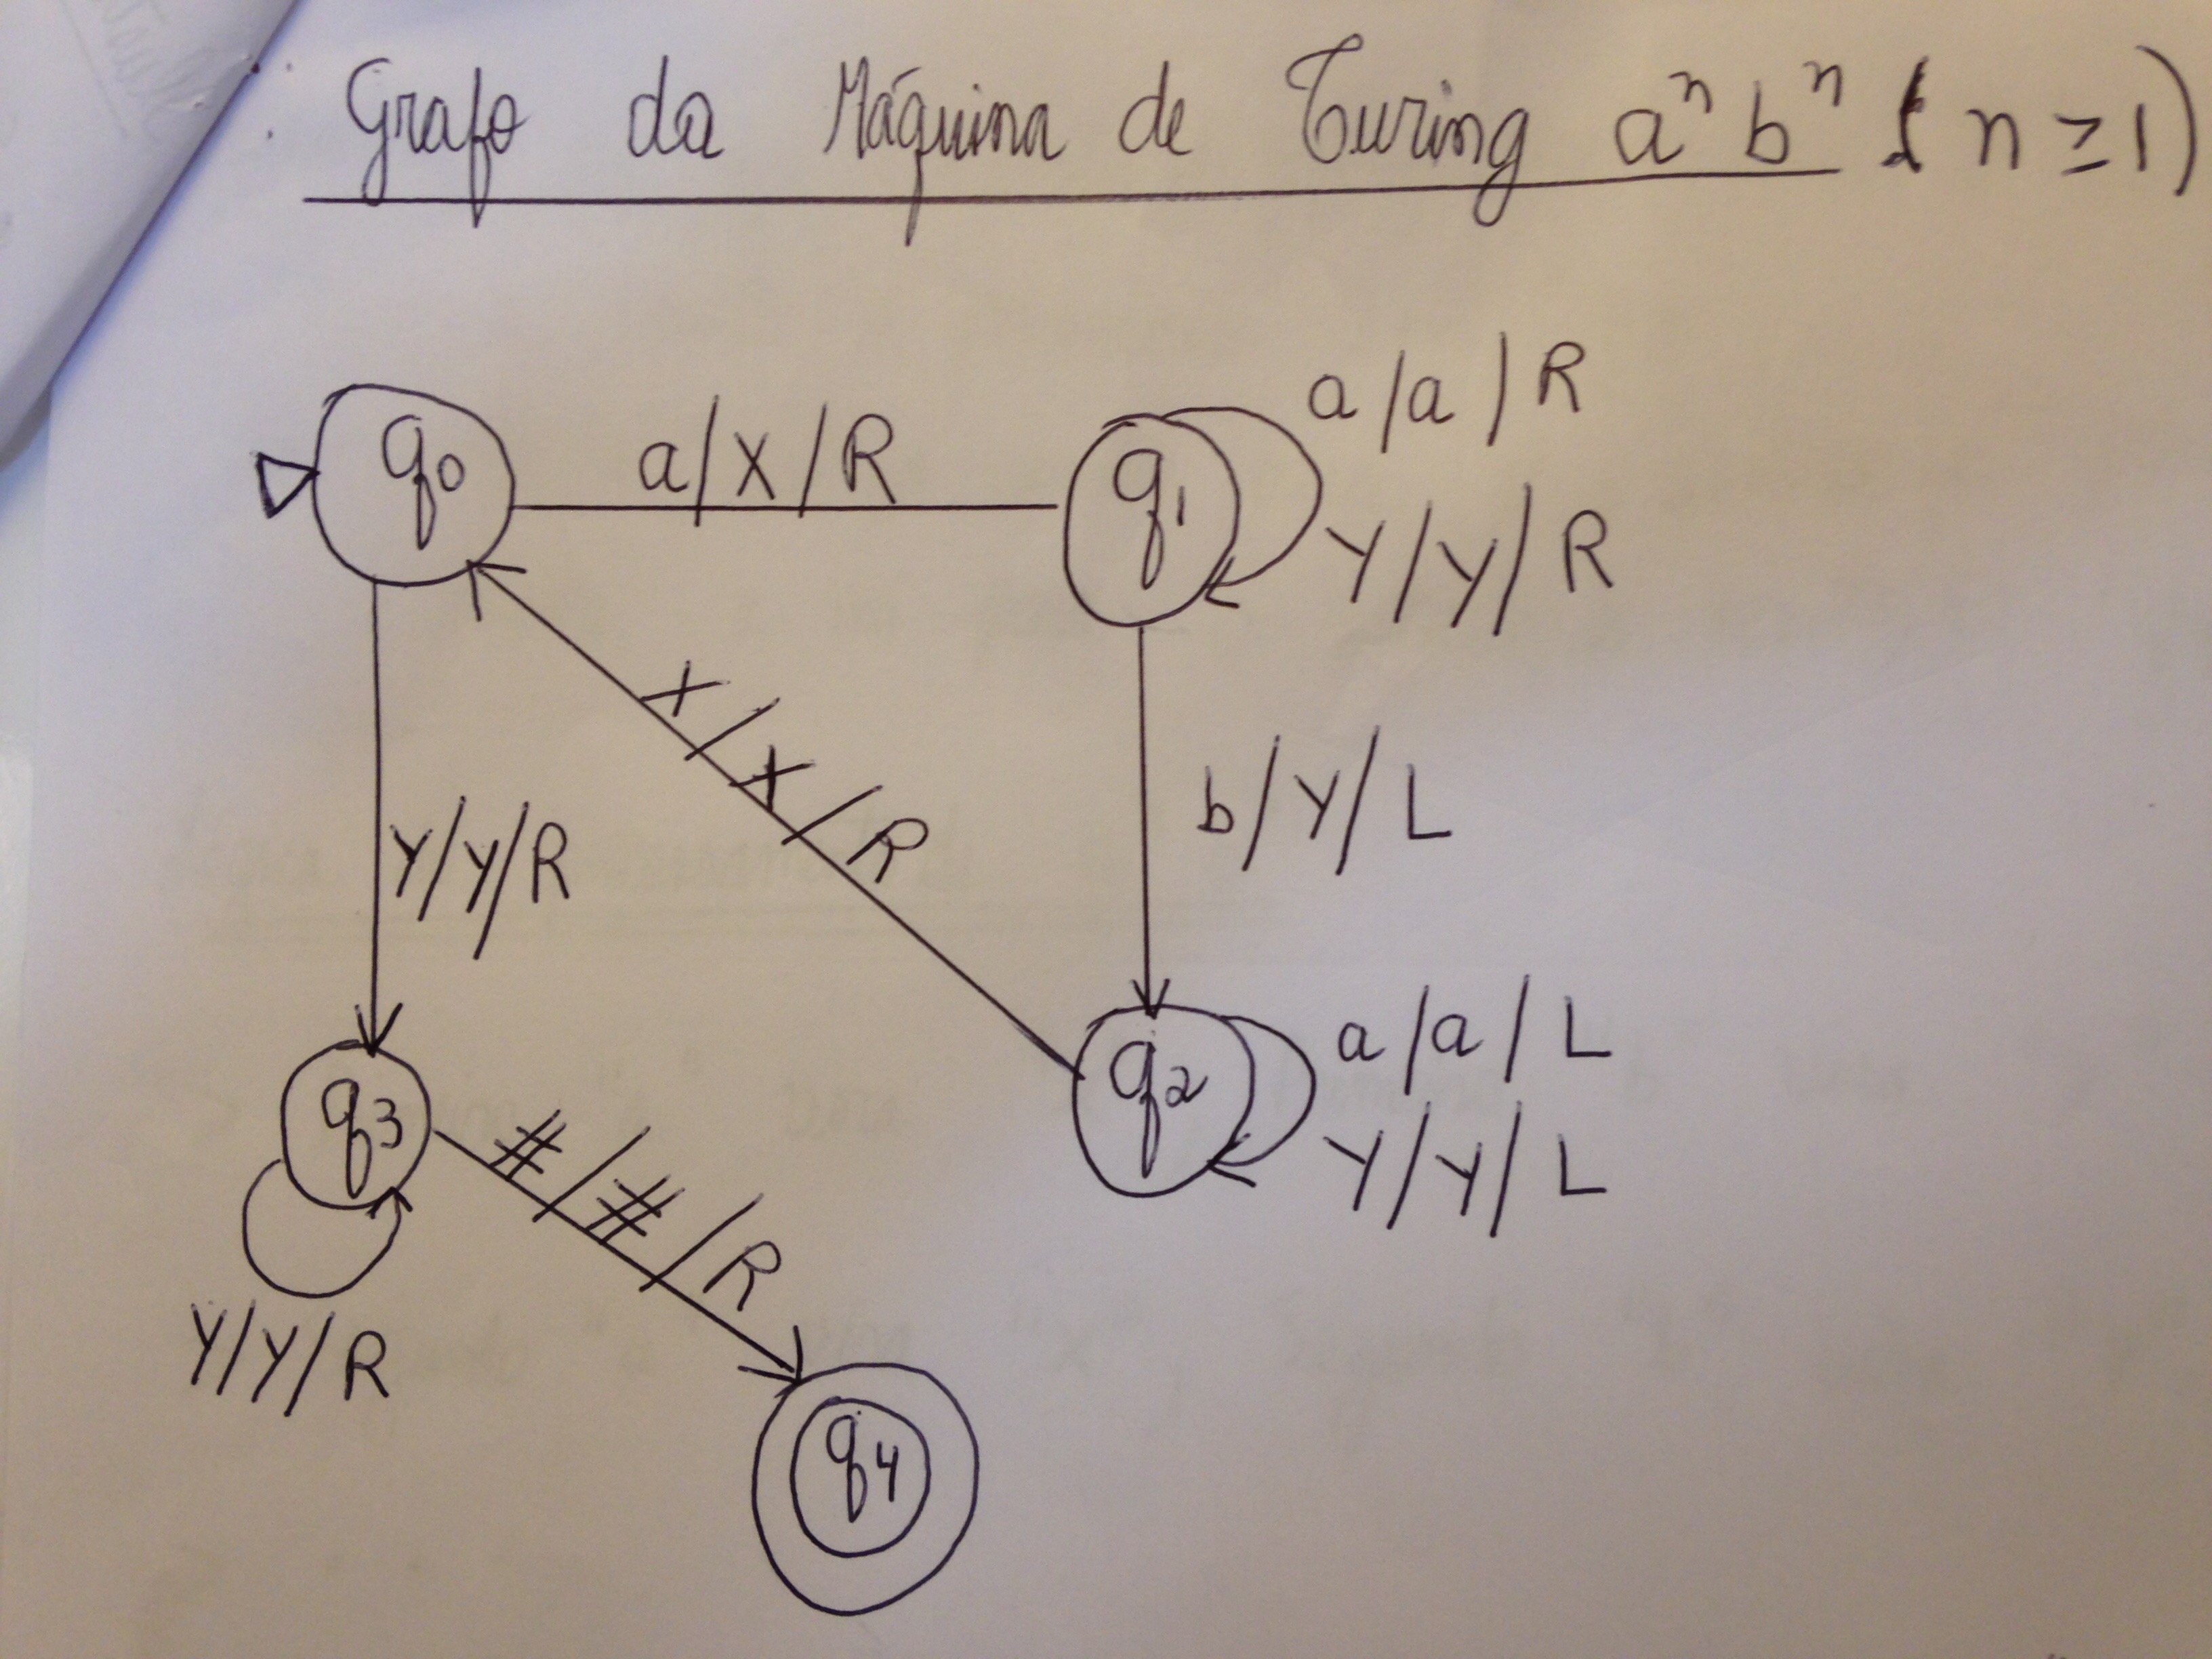 Grafo da Máquina de Turing aⁿ bⁿ (n ≥ 1)
q0
a/X/R
q1
a/a/R
Y/Y/R
X/X/R
b/Y/L
Y/Y/R
q2
a/a/L
Y/Y/L
q3
#/#/R
Y/Y/R
q4